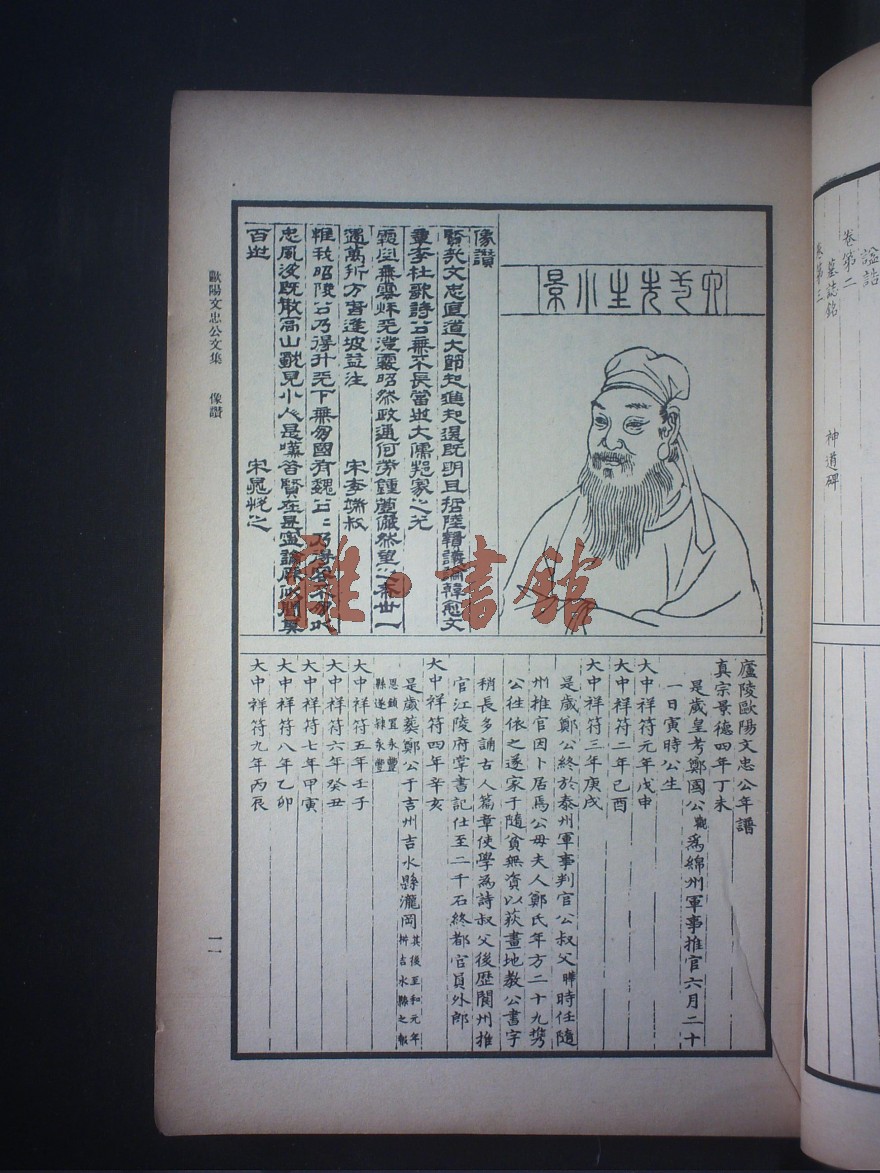 諡誥
卷第二
墓誌銘 神道碑
卷第三
六一先生小景
像讚
賢哉文忠直道大節知進知退既明且哲陸贄議論韓愈文
章李杜歌詩公無不長當世大儒邦家之光
無雲秋天昭然政通何勞儼然望之一
遇萬折方書逢坡益注 宋李端叔
惟我昭陵公乃得升天下無國有魏公
忠風沒既散高山見小人是昔賢在是寧論
百世 宋晁悅之
廬陵歐陽文忠公年譜
真宗景德四年丁未
是歲皇考鄭國公觀爲綿州軍事推官六月二十
一日寅時公生
大中祥符元年戊申
大中祥符二年己酉
大中祥符三年庚戌
是歲鄭公終於泰州軍事判官公叔父曄時任隨
州推官因卜居焉公母夫人鄭氏年方二十九攜
公往依之遂家于隨貧無資以荻畫地教公書字
稍長多誦古人篇章使學為詩叔父後歷閬州推
官江陵府掌書記仕至二千石終都官員外郎
大中祥符四年辛亥
是歲葬鄭公于吉州吉水縣瀧岡其後至和元年
析吉水縣之報
恩鎮置永豐
縣遂隸永豐
大中祥符五年壬子
大中祥符六年癸丑
大中祥符七年甲寅
大中祥符八年乙卯
大中祥符九年丙辰
歐陽文忠公文集 像讚
一一
雅·書館